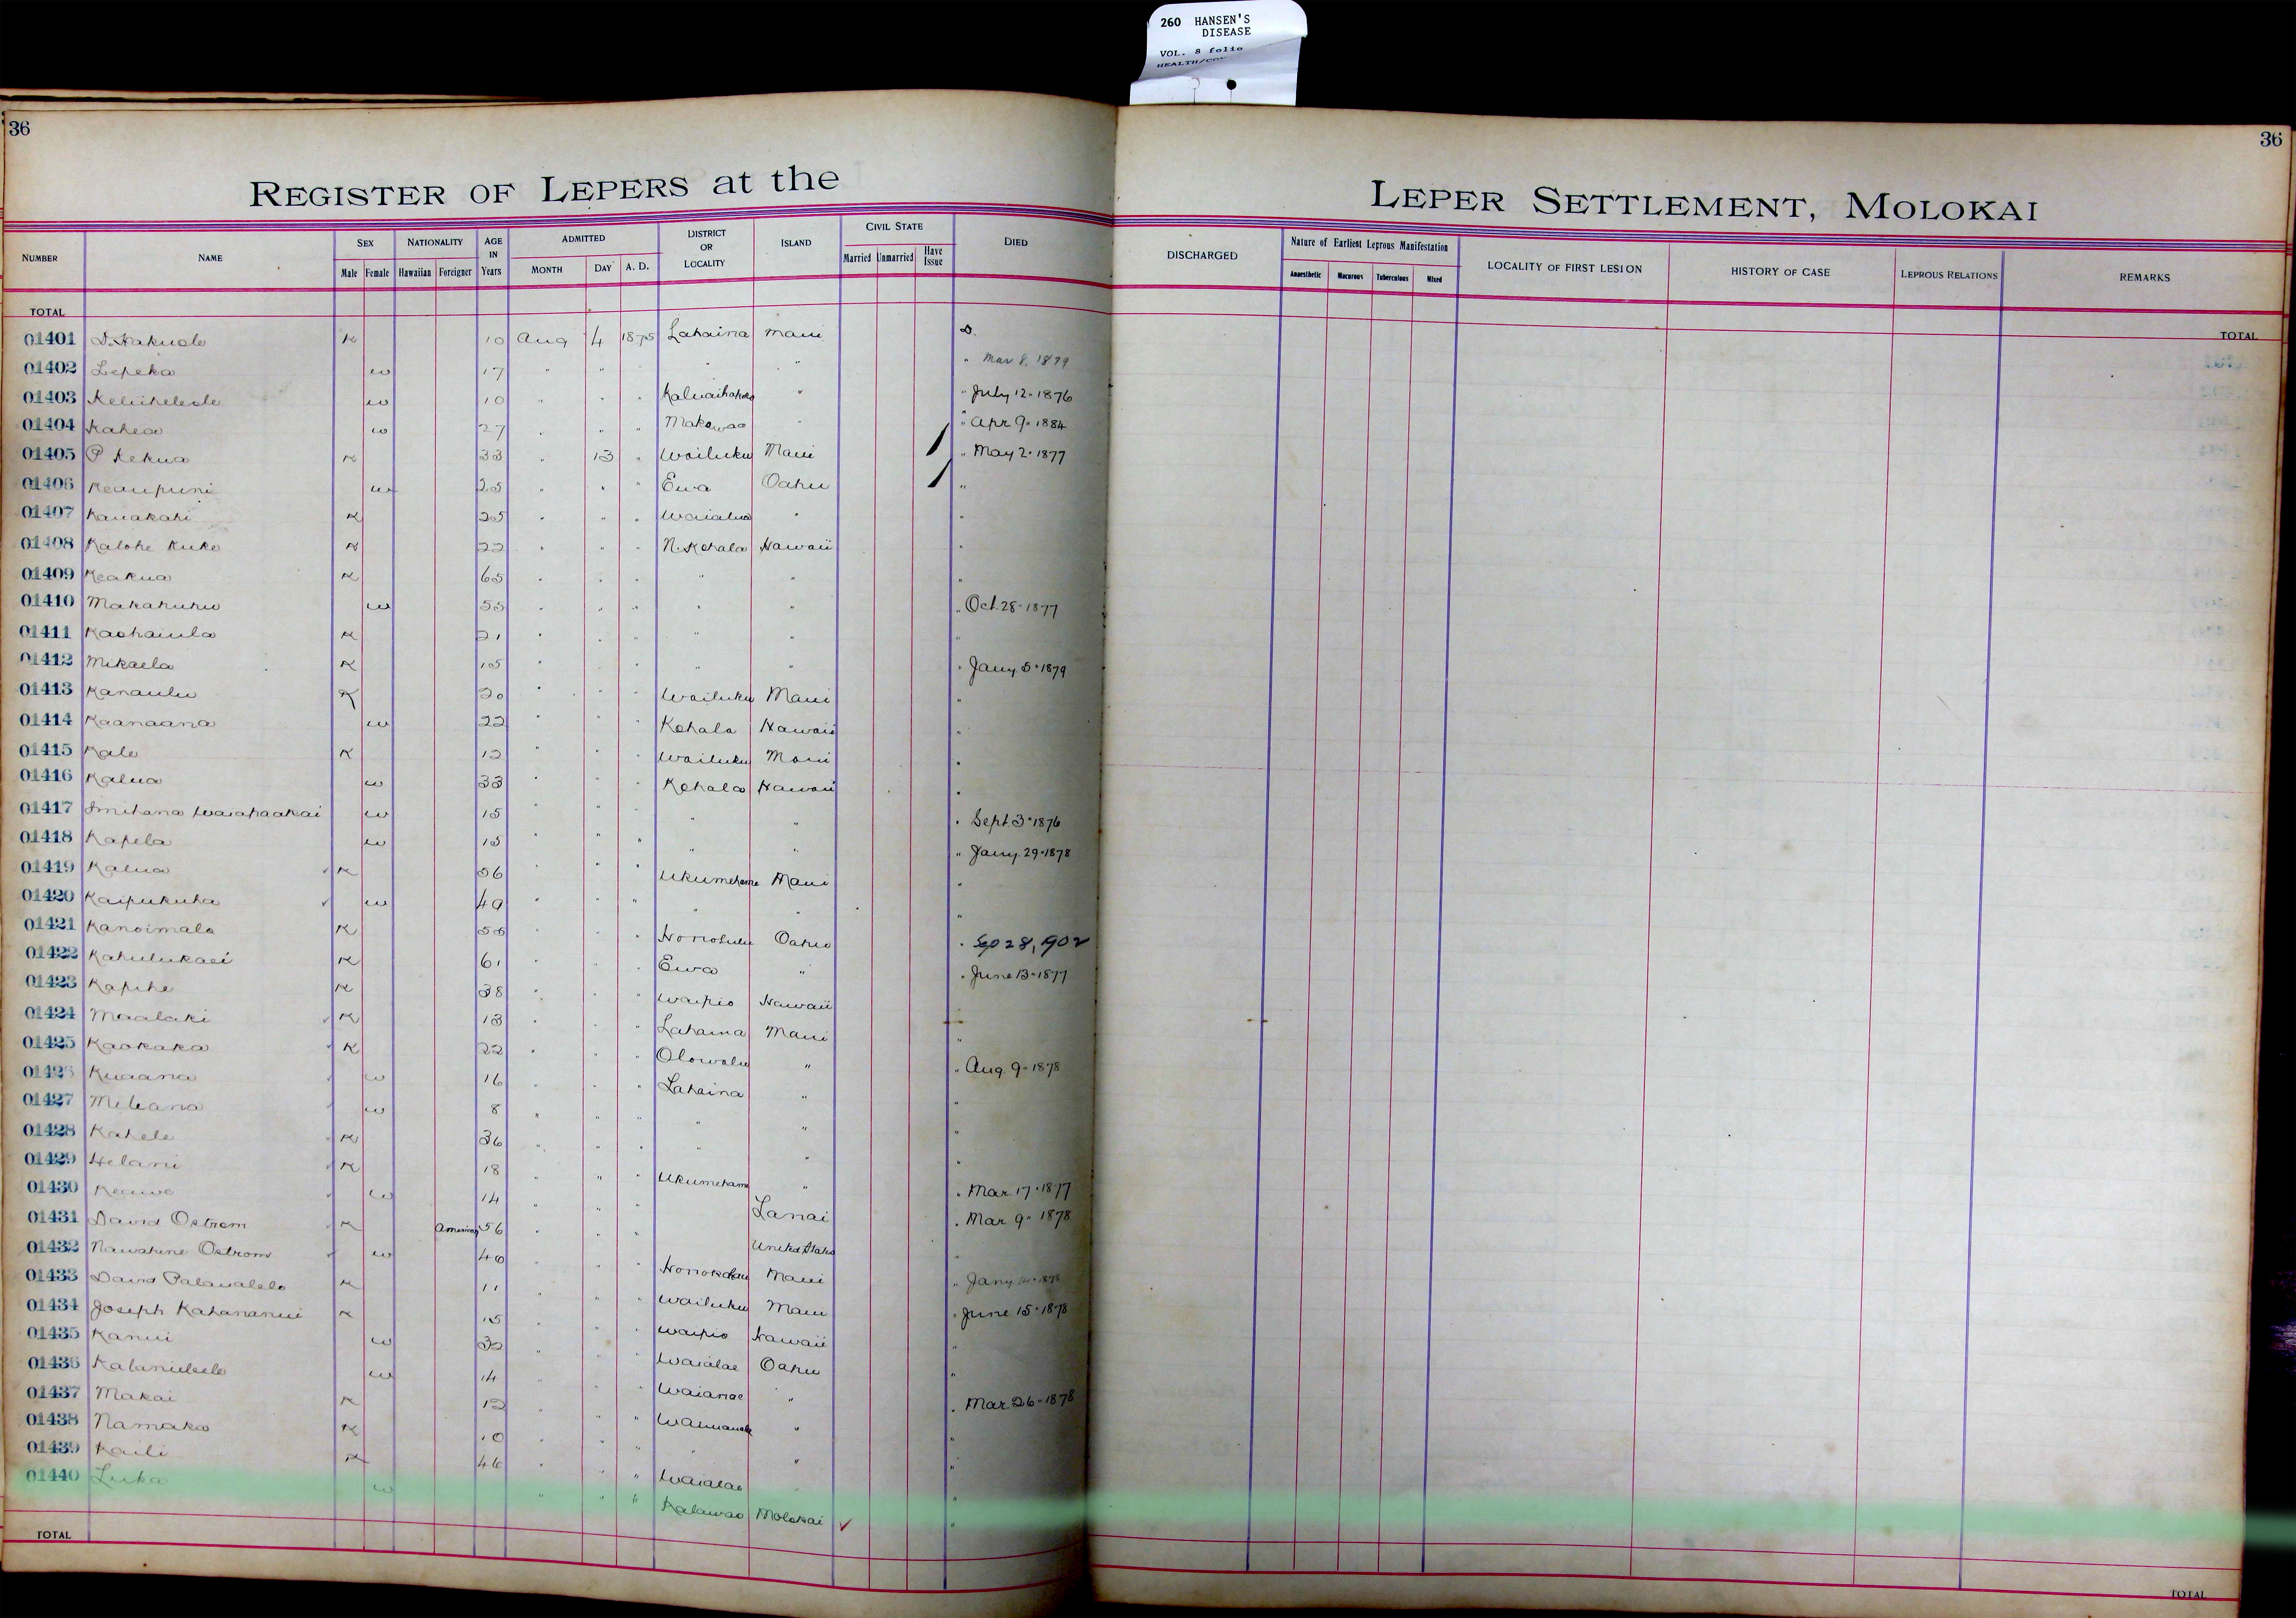 260 HANSEN'S
DISEASE
VOL. 8 folio
36
36
REGISTER OF LEPERS at the
LEPER SETTLEMENT, MOLOKAI
NUMBER NAME SEX Male Female NATIONALITY Hawaiian Foreigner AGE IN Years ADMITTED MONTH DAY A. D. DISTRICT OR LOCALITY ISLAND CIVIL STATE Married Unmarried Have Issue DIED
DISCHARGED Nature of Earliest Leprous Manifestation Anaesthetic Macurous Tuberculous Mixed LOCALITY OF FIRST LESION HISTORY OF CASE LEPROUS RELATIONS REMARKS
TOTAL
TOTAL
01401 D. Hakuole K 10 Aug 4 1875 Lahaina Maui D.
01402 Lepeka w 17 " " " " " " Mar 8. 1879
01403 Keliihelele w 10 " " " " " July 12 - 1876
01404 Kahea w 27 " " " Makawao " " Apr 9 - 1884
01405 P Kekua K 33 " 13 " Wailuku Maui / " May 2 - 1877
01406 Keaupuni w 25 " " " Ewa Oahu / "
01407 Kauakahi K 25 " " " Waialua " "
01408 Kalohe Kuke K 22 " " " N. Kohala Hawaii "
01409 Keakua K 65 " " " " " "
01410 Makahuhu w 55 " " " " " " Oct. 28 - 1877
01411 Kaohaiula K 21 " " " " " "
01412 Mikaela K 15 " " " " " " Jany 5 - 1879
01413 Kanaulu K 20 " " " Wailuku Maui "
01414 Kaanaana w 22 " " " Kohala Hawaii "
01415 Kale K 12 " " " Wailuku Maui "
01416 Kalua w 33 " " " Kohala Hawaii "
01417 w 15 " " " " " " Sept. 3 - 1876
01418 Kapela w 15 " " " " " " Jany. 29 - 1878
01419 Kalua K 56 " " " Ukumehame Maui "
01420 Kaipukuha w 49 " " " " " "
01421 Kanoimalo K 56 " " " Honolulu Oahu " Sep 28, 1902
01422 Kahulukaei K 61 " " " Ewa " " June 13 - 1877
01423 Kapihe K 38 " " " Waipio Hawaii
01424 Maalaki K 13 " " " Lahaina Maui "
01425 Kaokaka K 22 " " " Olowalu " " Aug. 9 - 1878
01426 Kuaana w 16 " " " Lahaina " "
01427 Meleana w 8 " " " " " "
01428 Kahele K 36 " " " " " "
01429 Helani K 18 " " " Ukumehame " " Mar. 17 - 1877
01430 Keawe w 14 " " " Lanai " Mar. 9 - 1878
01431 David Ostrom K American 56 " " " United States "
01432 Nawahine Ostrom w 40 " " " Honokohau Maui " Jany
01433 David Palaualelo K 11 " " " Wailuku Maui " June 15 - 1878
01434 Joseph Kahananui K 15 " " " Waipio Hawaii "
01435 Kanui w 32 " " " Waialae Oahu "
01436 w 14 " " " Waianae " " Mar. 26 - 1878
01437 Makai K 12 " " " " "
01438 Namaka K 10 " " " " " "
01439 Kaili K 46 " " " Waialae " "
01440 Luka w " " " Kalawao Molokai ✓ "
TOTAL
TOTAL